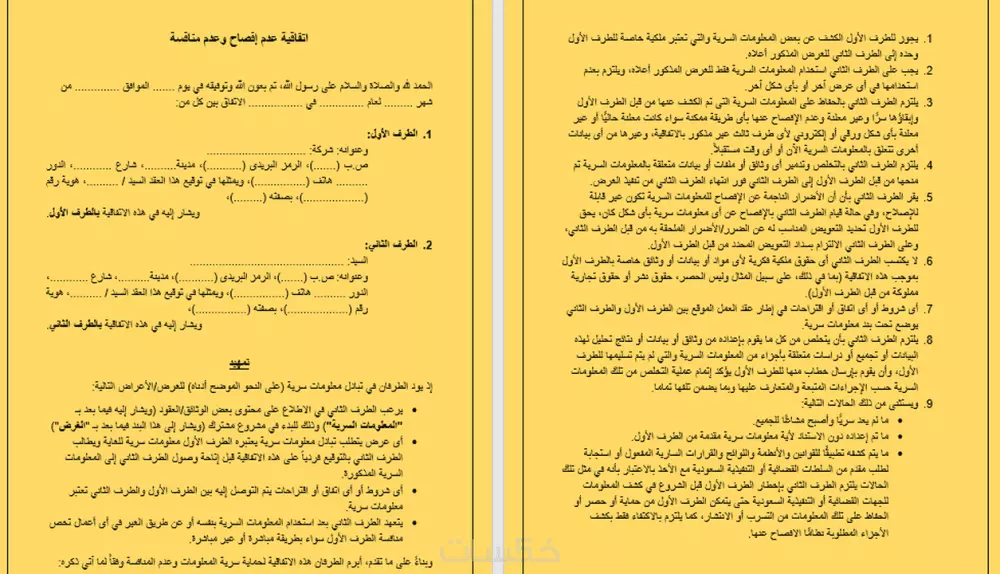 اتفاقية عدم إفصاح وعدم منافسة
الحمد لله والصلاة والسلام على رسول الله، تم بعون الله وتوفيقه في يوم ....... الموافق .............. من
شهر ......... لعام ................. في ................. الاتفاق بين كل من:
1. الطرف الأول:
وعنوانه: شركة: ..............................
ص.ب (.......)، الرمز البريدي (..........)، مدينة..........، شارع ............، الدور
......... هاتف (...............)، ويمثلها في توقيع هذا العقد السيد / .........، هوية رقم
(...................)، بصفته (..........)،
ويشار إليه في هذه الاتفاقية بالطرف الأول.
2. الطرف الثاني:
السيد: ....................................
وعنوانه: ص.ب (.......)، الرمز البريدي (..........)، مدينة..........، شارع ............،
الدور ......... هاتف (...............)، ويمثلها في توقيع هذا العقد السيد / .........، هوية
رقم (...................)، بصفته (..............)،
ويشار إليه في هذه الاتفاقية بالطرف الثاني.
تمهيد
إذ يود الطرفان في تبادل معلومات سرية (على النحو الموضح أدناه) للعرض/الأعراض التالية:
• يرغب الطرف الثاني في الاطلاع على محتوى بعض الوثائق/العقود (ويشار إليه فيما بعد بـ
"المعلومات السرية") وذلك للبدء في مشروع مشترك (ويشار إلى هذا البند فيما بعد بـ "الغرض")
• أي عرض يتطلب تبادل معلومات سرية يعتبره الطرف الأول معلومات سرية للغاية ويطالب
الطرف الثاني بالتوقيع فردياً على هذه الاتفاقية قبل إتاحة وصول الطرف الثاني إلى المعلومات
السرية المذكورة.
• أي شروط أو أي اتفاق أو اقتراحات يتم التوصل إليه بين الطرف الأول والطرف الثاني تعتبر
معلومات سرية.
• يتعهد الطرف الثاني بعد استخدام المعلومات السرية بنفسه أو عن طريق الغير في أي أعمال تخص
منافسة الطرف الأول سواء بطريقة مباشرة أو غير مباشرة.
وبناءً على ما تقدم، أبرم الطرفان هذه الاتفاقية لحماية سرية المعلومات وعدم المنافسة وفقاً لما آتي ذكره:
1. يجوز للطرف الأول الكشف عن بعض المعلومات السرية والتي تعتبر ملكية خاصة للطرف الأول
وحده إلى الطرف الثاني للعرض المذكور أعلاه.
2. يجب على الطرف الثاني استخدام المعلومات السرية فقط للعرض المذكور أعلاه، ويلتزم بعدم
استخدامها في أي عرض أخر أو بأي شكل أخر.
3. يلتزم الطرف الثاني بالحفاظ على المعلومات السرية التي تم الكشف عنها من قبل الطرف الأول
وإبقاؤها سرًّا وغير معلنة وعدم الإفصاح عنها بأي طريقة ممكنة سواء كانت معلنة حاليًّا أو غير
معلنة بأي شكل ورقي أو إلكتروني لأي طرف ثالث غير مذكور بالاتفاقية، وغيرها من أي بيانات
أخرى تتعلق بالمعلومات السرية الآن أو أي وقت مستقبلاً.
4. يلتزم الطرف الثاني بالتخلص وتدمير أي وثائق أو ملفات أو بيانات متعلقة بالمعلومات السرية تم
منحها من قبل الطرف الأول إلى الطرف الثاني فور انتهاء الطرف الثاني من تنفيذ العرض.
5. يقر الطرف الثاني بأن أن الأضرار الناجمة عن الإفصاح للمعلومات السرية تكون غير قابلة
للإصلاح، وفي حالة قيام الطرف الثاني بالإفصاح عن أي معلومات سرية بأي شكل كان، يحق
للطرف الأول تحديد التعويض المناسب له عن الضرر/الأضرار الملحقة به من قبل الطرف الثاني،
وعلى الطرف الثاني الالتزام بسداد التعويض المحدد من قبل الطرف الأول.
6. لا يكتسب الطرف الثاني أي حقوق ملكية فكرية لأي مواد أو بيانات أو وثائق خاصة بالطرف الأول
بموجب هذه الاتفاقية (بما في ذلك، على سبيل المثال وليس الحصر، حقوق نشر أو حقوق تجارية
مملوكة من قبل الطرف الأول).
7. أي شروط أو أي اتفاق أو اقتراحات في إطار عقد العمل الموقع بين الطرف الأول والطرف الثاني
يوضع تحت بند معلومات سرية.
8. يلتزم الطرف الثاني بأن يتخلص من كل ما يقوم بإعداده من وثائق أو بيانات أو نتائج تحليل لهذه
البيانات أو تجميع أو دراسات متعلقة بأجزاء من المعلومات السرية والتي لم يتم تسليمها للطرف
الأول، وأن يقوم بإرسال خطاب منها للطرف الأول يؤكد إتمام عملية التخلص من تلك المعلومات
السرية حسب الإجراءات المتبعة والمتعارف عليها وبما يضمن تلفها تماما.
9. ويستثنى من ذلك الحالات التالية:
• ما لم يعد سريًّا وأصبح مشاعًا للجميع.
• ما تم إعداده دون الاستناد لأية معلومات سرية مقدمة من الطرف الأول.
• ما يتم كشفه تطبيقًا للقوانين والأنظمة واللوائح والقرارات السارية المفعول أو استجابة
لطلب مقدم من السلطات القضائية أو التنفيذية السعودية مع الأخذ بالاعتبار بأنه في مثل تلك
الحالات يلتزم الطرف الثاني بإخطار الطرف الأول قبل الشروع في كشف المعلومات
للجهات القضائية أو التنفيذية السعودية حتى يتمكن الطرف الأول من حماية أو حصر أو
الحفاظ على تلك المعلومات من التسرب أو الانتشار، كما يلتزم بالاكتفاء فقط بكشف
الأجزاء المطلوبة نظامًا الافصاح عنها.
خمسات